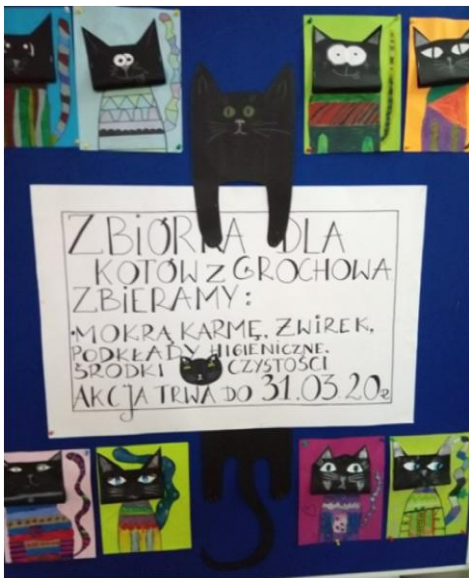 ZBIÓRKA DLA
KOTÓW Z GROCHOWA
ZBIERAMY:
• MOKRĄ KARMĘ, ŻWIREK,
PODKŁADY HIGIENICZNE.
ŚRODKI CZYSTOŚCI
AKCJA TRWA DO 31.03.20r